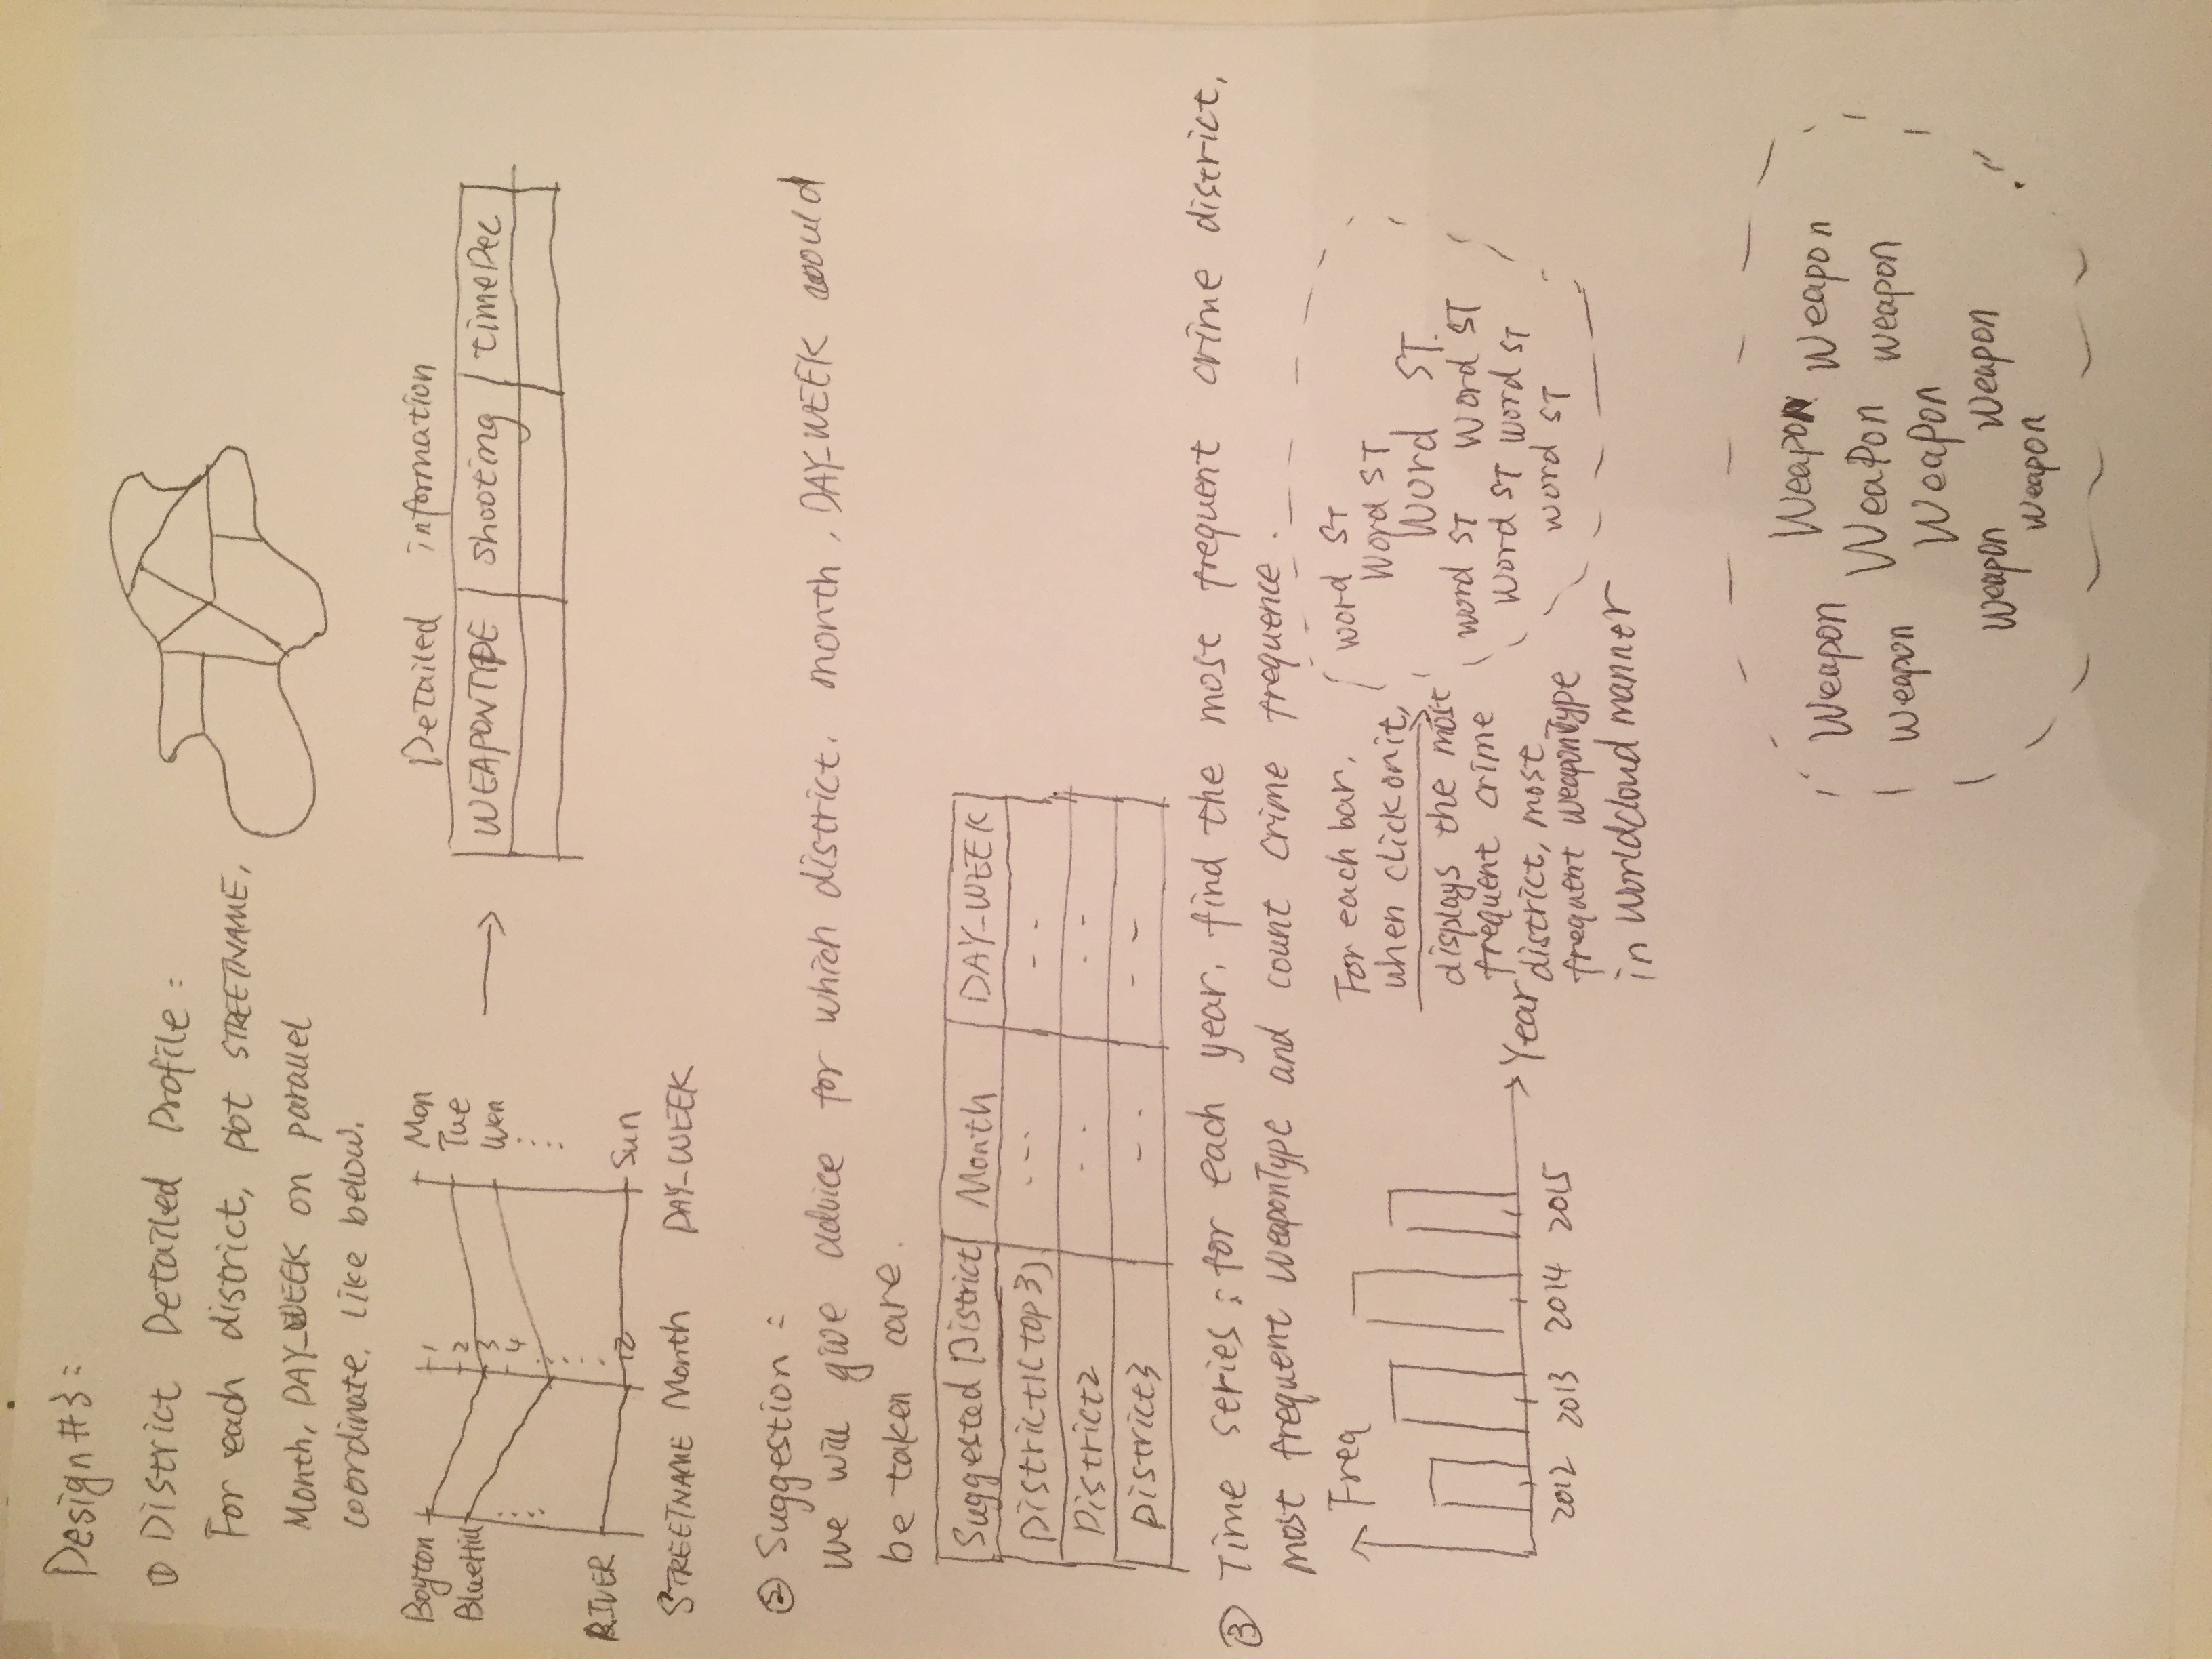 Design #3:
① District Detailed Profile:
For each district, plot STREETNAME,
Month, DAY_WEEK on parallel
coordinate. like below.
Boyton
BlueHill
RIVER
1
2
3
4
12
Mon
Tue
Wen
Sun
STREETNAME Month DAY_WEEK
Detailed information
WEAPONTYPE shooting timeDec
② Suggestion:
We will give advice for which district, month, DAY_WEEK would
be taken care.
Suggested District Month DAY_WEEK
District1(top3) --- --
District2 -- --
District3 -- --
③ Time series: for each year, find the most frequent crime district,
most frequent WeaponType and count crime frequence.
Freq
Year
2012 2013 2014 2015
For each bar,
when click on it,
displays the most
frequent crime
district, most
frequent WeaponType
in Worldcloud manner
word ST
Word ST
Word ST.
word ST Word ST
Word ST Word ST
word ST
Weapon Weapon Weapon
Weapon Weapon Weapon
Weapon
Weapon Weapon
Weapon